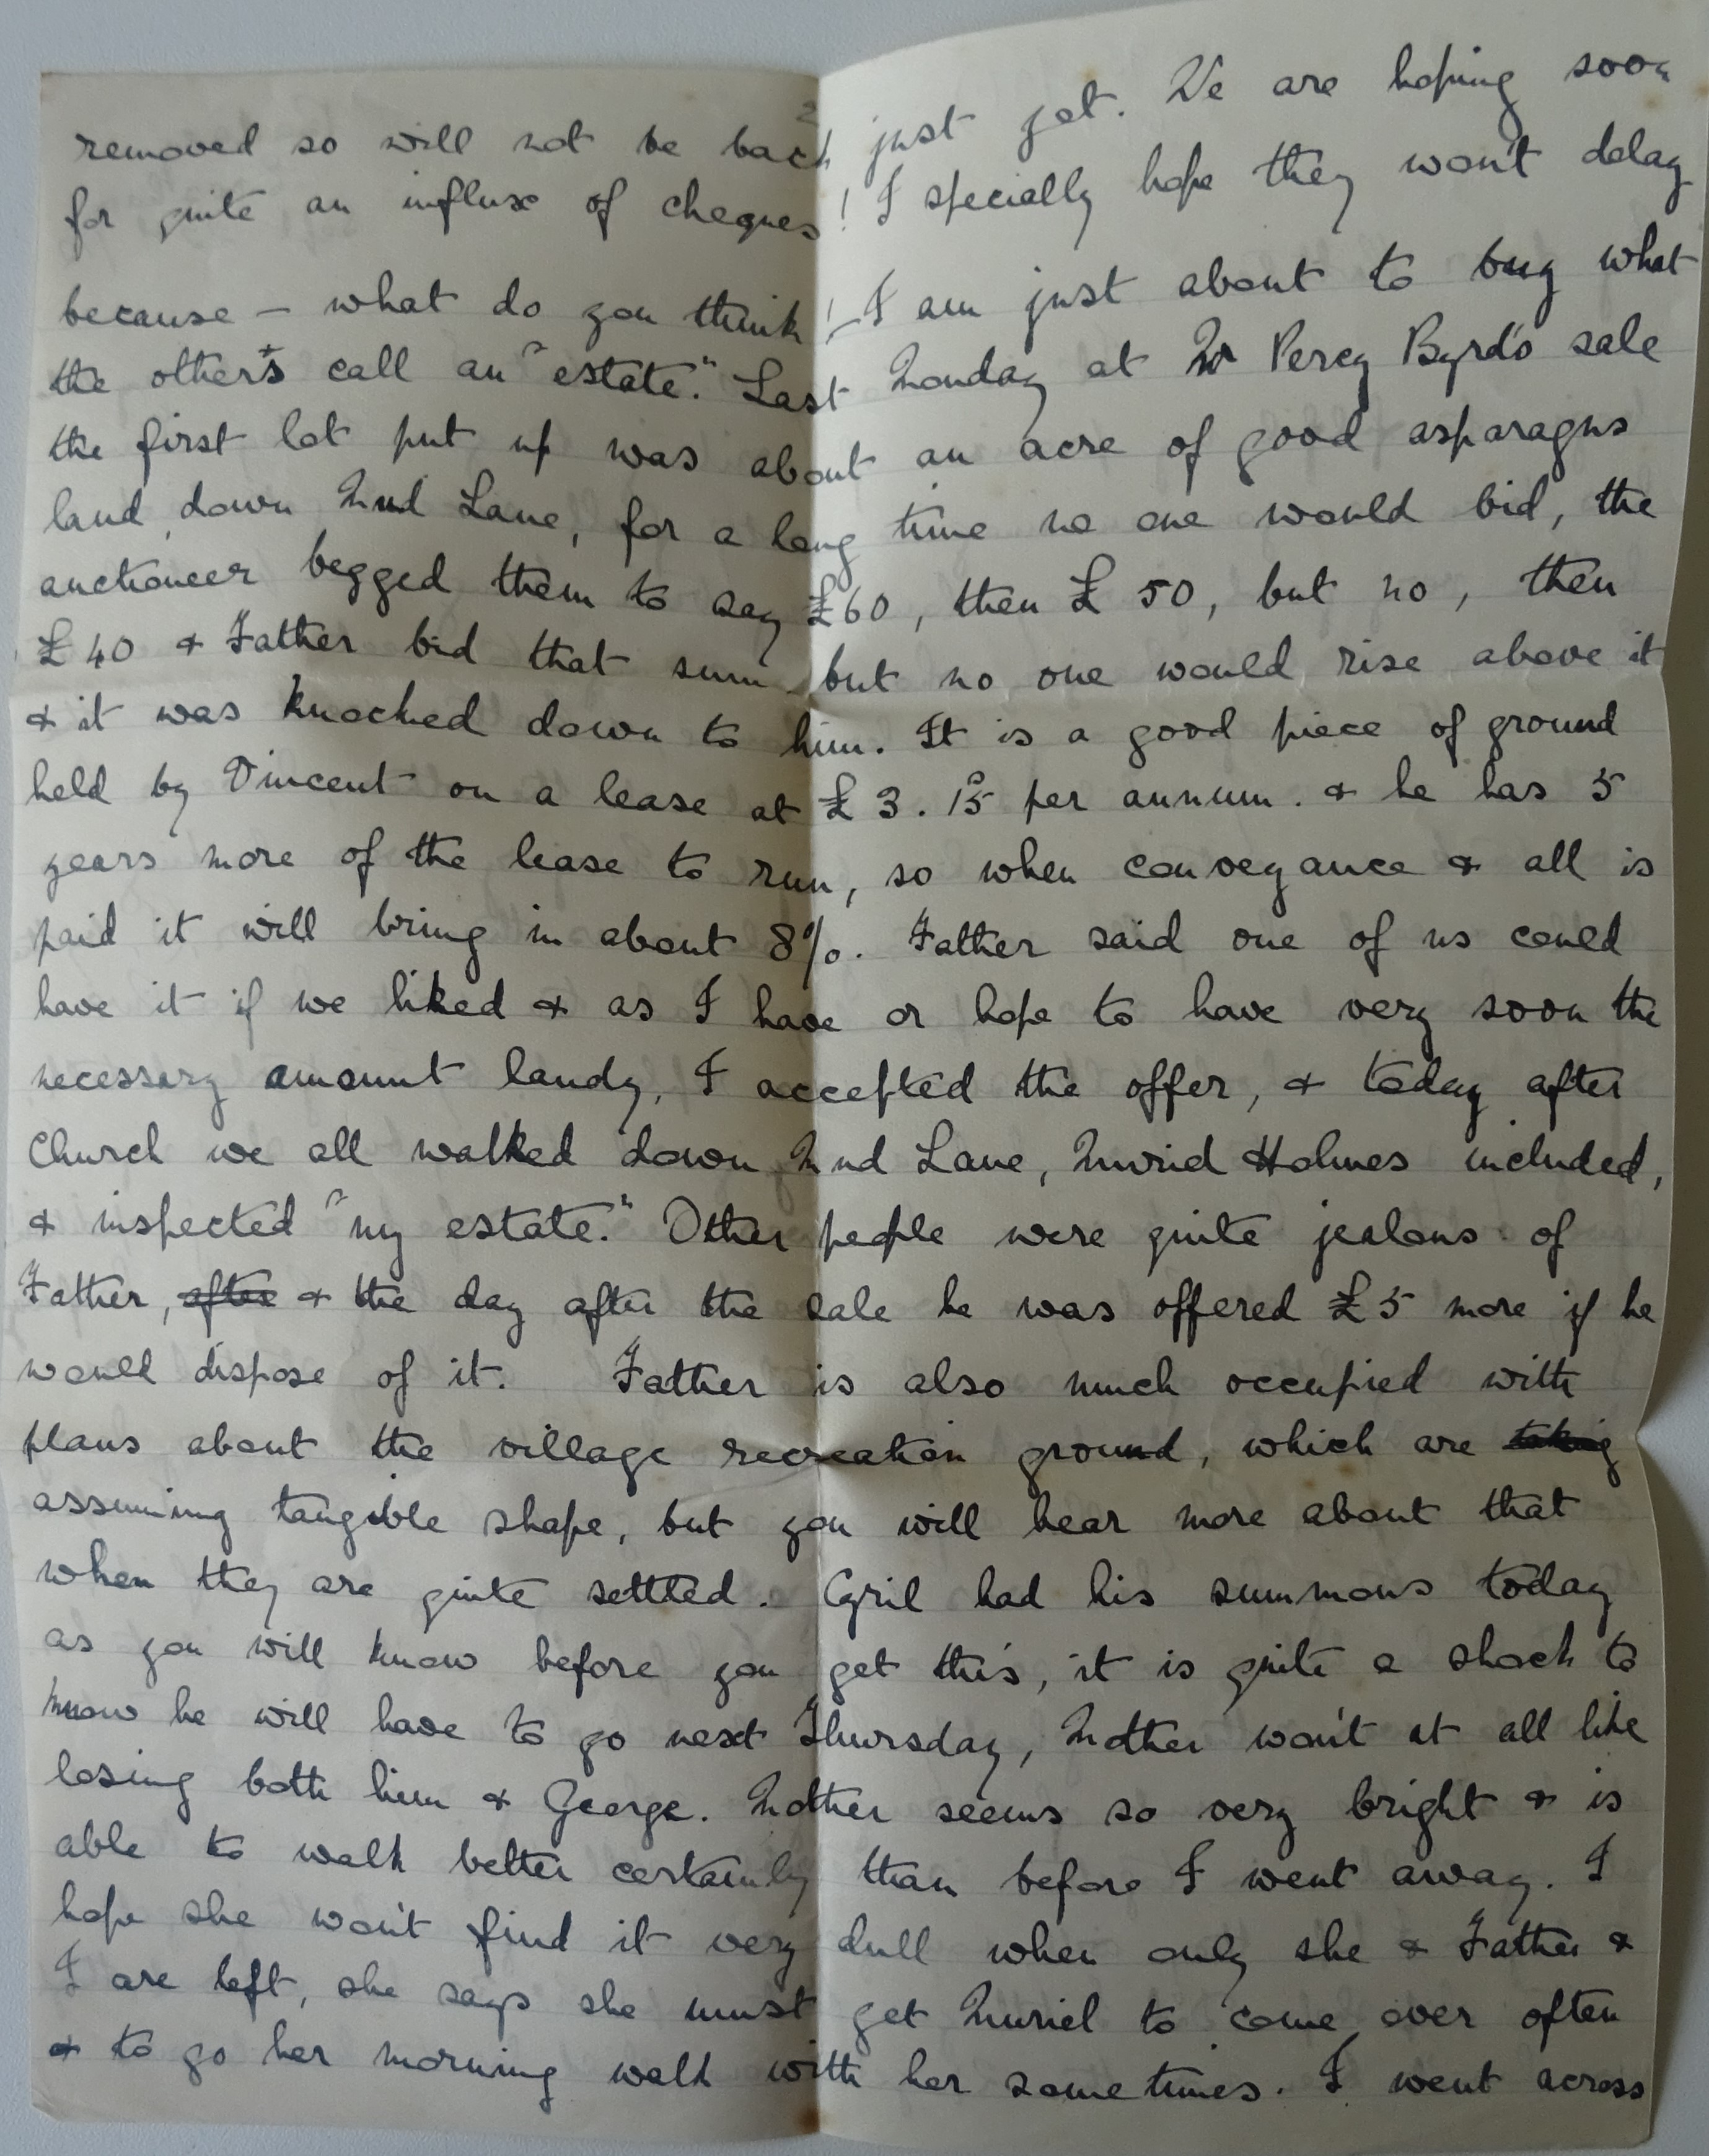 2
removed so will not be back just yet. We are hoping soon
for quite an influx of cheques! I specially hope they won't delay
because – what do you think! – I am just about to buy what
the others call an "estate." Last Monday at Mr Percy Byrd's sale
the first lot put up was about an acre of good asparagus
land down Mud Lane, for a long time no one would bid, the
auctioneer begged them to say £60, then £50, but no, then
£40 & Father bid that sum but no one would rise above it
& it was knocked down to him. It is a good piece of ground
held by Vincent on a lease at £3.15 per annum. & he has 5
years more of the lease to run, so when conveyance & all is
paid it will bring in about 8%. Father said one of us could
have it if we liked & as I have or hope to have very soon the
necessary amount handy, I accepted the offer, & today after
Church we all walked down Mud Lane, Muriel Holmes included,
& inspected "my estate." Other people were quite jealous of
Father, after & the day after the sale he was offered £5 more if he
would dispose of it. Father is also much occupied with
plans about the village recreation ground, which are taking
assuming tangible shape, but you will hear more about that
when they are quite settled. Cyril had his summons today
as you will know before you get this, it is quite a shock to
know he will have to go next Thursday, Mother won't at all like
losing both him & George. Mother seems so very bright & is
able to walk better certainly than before I went away. I
hope she won't find it very dull when only she & Father &
I are left, she says she must get Muriel to come over often
& to go her morning walk with her sometimes. I went across